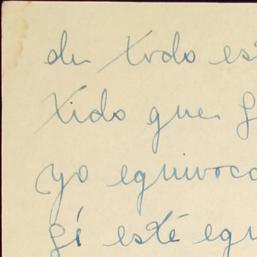 de todo es
tido que
yo equivoca
si esté equ